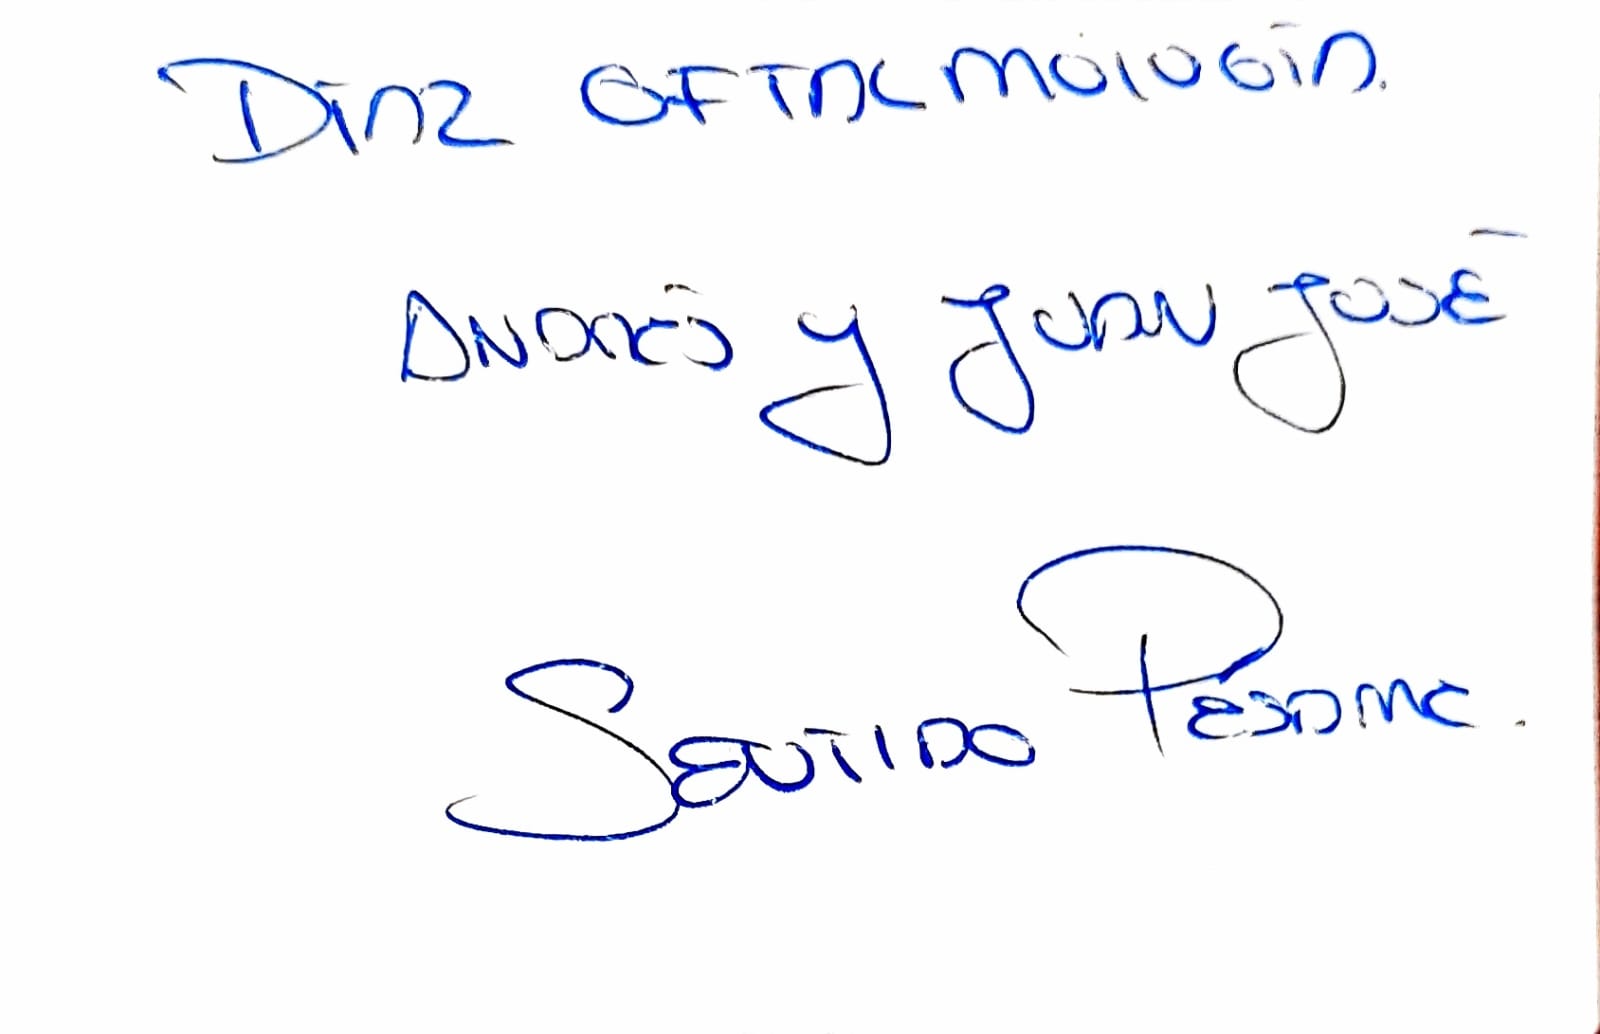 Díaz OFTALMOLOGÍA.
ANDRÉS y JUAN JOSÉ
SENTIDO PÉSAME.